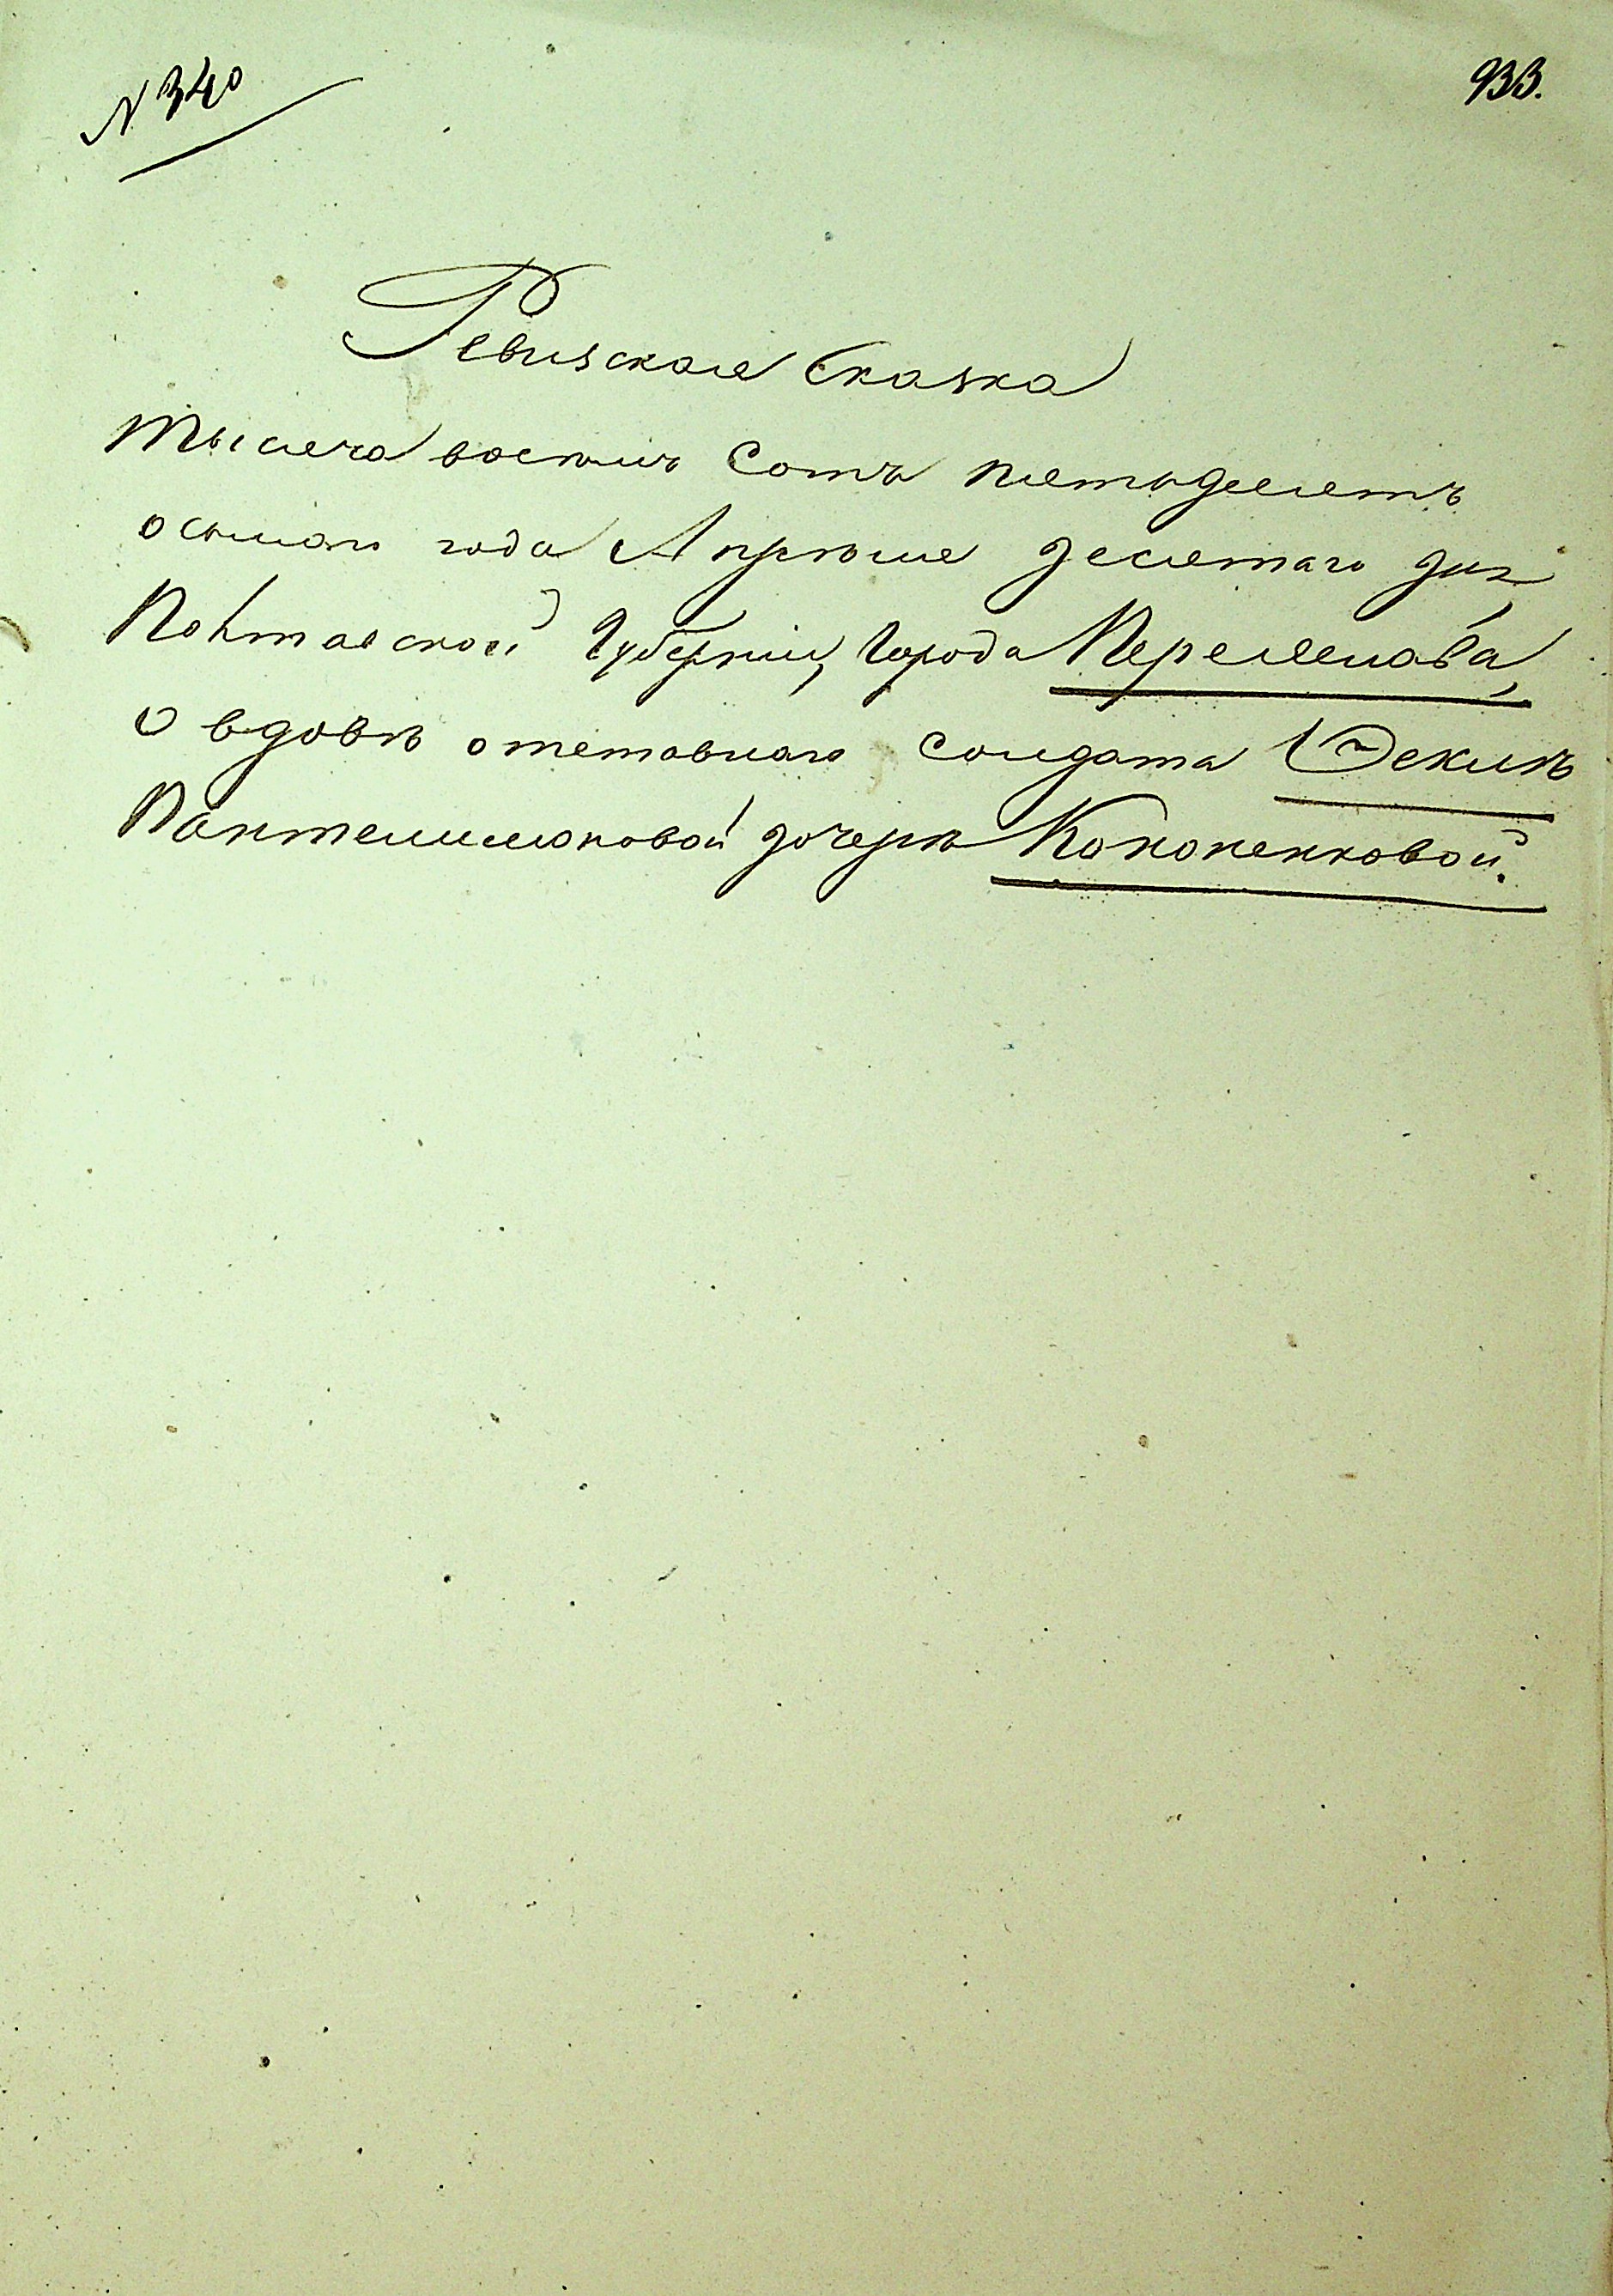 N 340
933.
Ревизская Сказка
Тысяча восемь Сотъ пятьдесятъ
осьмаго года Апреля десятаго дня
Полтавской Губерніи, Города Переяслава,
О вдовѣ отставнаго солдата Феклѣ
Пантелимоновой дочерѣ Кононенковой.